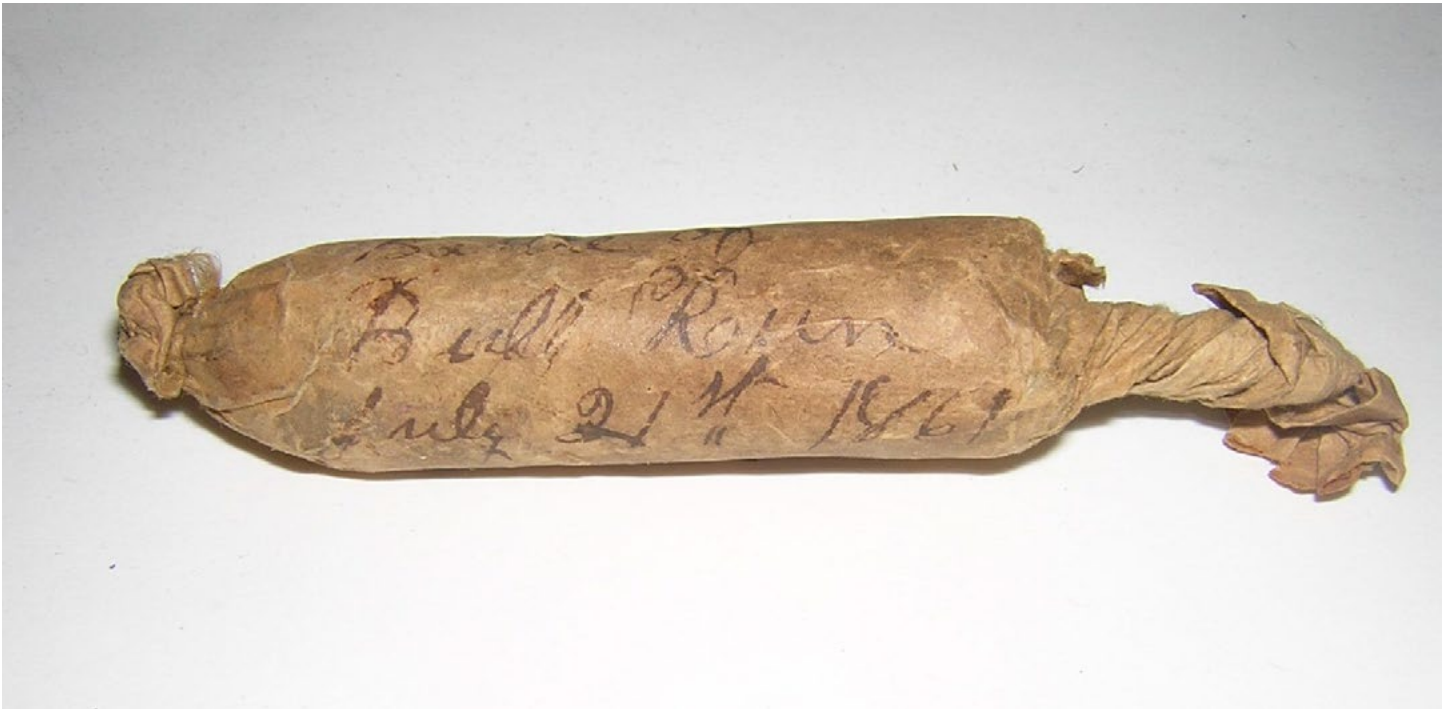 Battle of
Bull Run
July 21st 1861